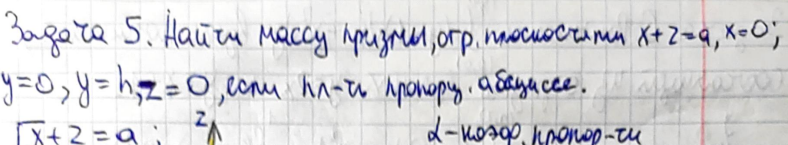 Задача 5. Найти массу призмы, огр. плоскостями x+z=a, x=0;
y=0, y=h, z=0, если пл-ть пропорц. абсциссе.
x+z=a; z α-коэф. пропор-ти